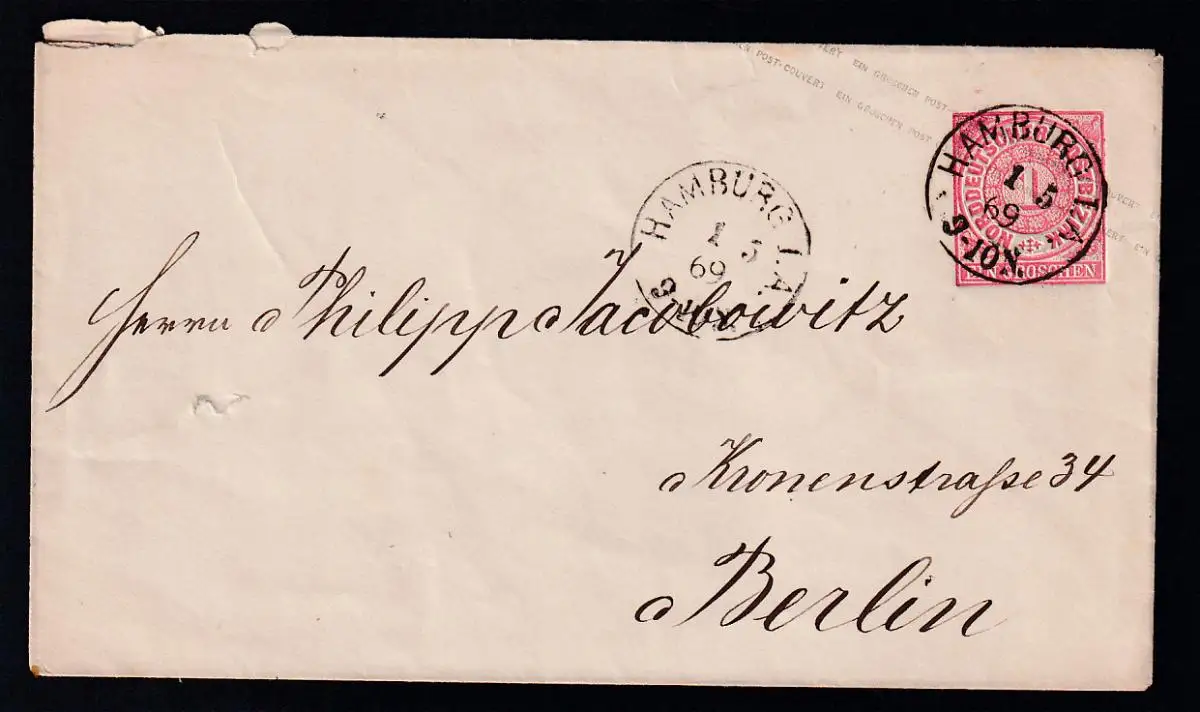 EIN GROSCHEN POST-COUVERT EIN GROSCHEN POST-
POST-COUVERT EIN GROSCHEN POST-C
HAMBURG I.A.
1 5
69
HAMBURG
1 5
69
9-10N.
NORDDEUTSCHER
1
EIN GROSCHEN
Herrn Philipp Jacobowitz
Kronenstraſse 34
Berlin